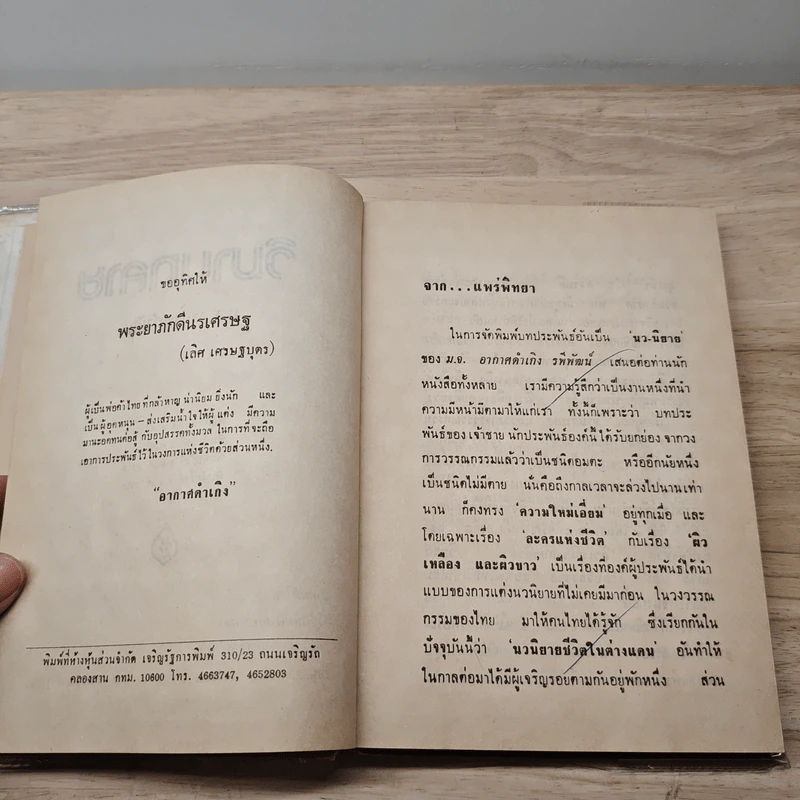 ขออุทิศให้
พระยาภักดีนรเศรษฐ
(เลิศ เศรษฐบุตร)
ผู้เป็นพ่อค้าไทย ที่กล้าหาญ น่านิยม ยิ่งนัก และ
เป็น ผู้อุดหนุน – ส่งเสริมน้ำใจ ให้ผู้ แต่ง มีความ
มานะอดทนต่อสู้ กับอุปสรรคทั้งมวล ในการที่จะถือ
เอาการประพันธ์ไว้ในวงการแห่งชีวิตด้วยส่วนหนึ่ง.
"อากาศดำเกิง"
พิมพ์ที่ห้างหุ้นส่วนจำกัด เจริญรัฐการพิมพ์ 310/23 ถนนเจริญรัถ
คลองสาน กทม. 10600 โทร. 4663747, 4652803
จาก...แพร่พิทยา
ในการจัดพิมพ์บทประพันธ์อันเป็น 'นว-นิยาย'
ของ ม.จ. อากาศดำเกิง รพีพัฒน์ เสนอต่อท่านนัก
หนังสือทั้งหลาย เรามีความรู้สึกว่าเป็นงานหนึ่งที่นำ
ความมีหน้ามีตามาให้แก่เรา ทั้งนี้ก็เพราะว่า บทประ
พันธ์ของ เจ้าชาย นักประพันธ์องค์นี้ ได้รับยกย่อง จากวง
การวรรณกรรมแล้วว่าเป็นชนิดอมตะ หรืออีกนัยหนึ่ง
เป็นชนิดไม่มีตาย นั่นคือถึงกาลเวลาจะล่วงไปนานเท่า
นาน ก็คงทรง 'ความใหม่เอี่ยม' อยู่ทุกเมื่อ และ
โดยเฉพาะเรื่อง 'ละครแห่งชีวิต' กับเรื่อง 'ผิว
เหลือง และผิวขาว' เป็นเรื่องที่องค์ผู้ประพันธ์ได้นำ
แบบของการแต่งนวนิยายที่ไม่เคยมีมาก่อน ในวงวรรณ
กรรมของไทย มาให้คนไทยได้รู้จัก ซึ่งเรียกกันใน
ปัจจุบันนี้ว่า 'นวนิยายชีวิตในต่างแดน' อันทำให้
ในกาลต่อมาได้มีผู้เจริญรอยตามกันอยู่พักหนึ่ง ส่วน